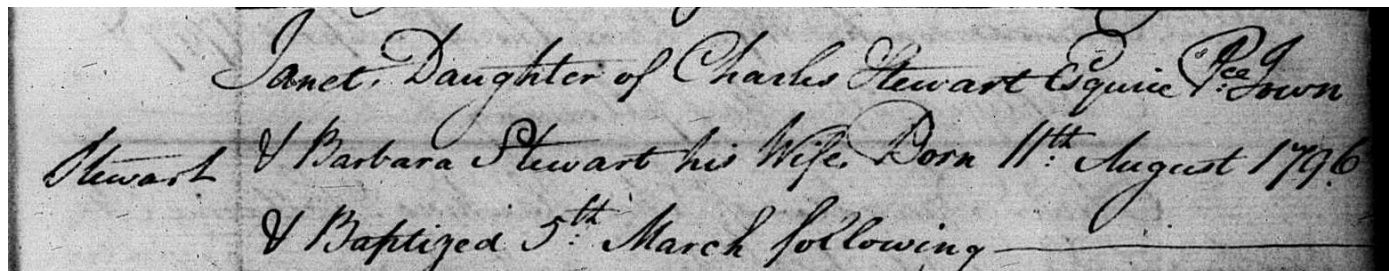 Janet, Daughter of Charles Stewart Esquire P:ce Town
Stewart & Barbara Stewart his Wife, Born 11:th August 1796
& Baptized 5:th March following